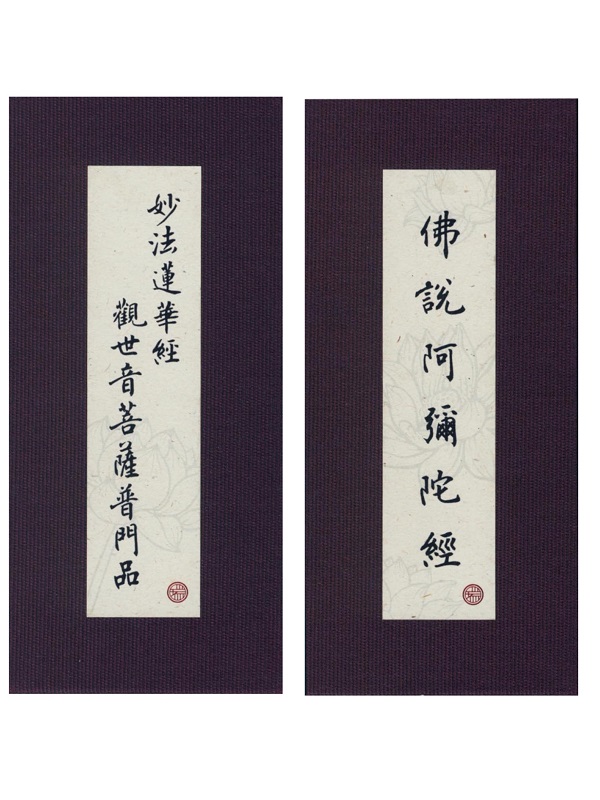 妙法蓮華經
觀世音菩薩普門品
佛說阿彌陀經